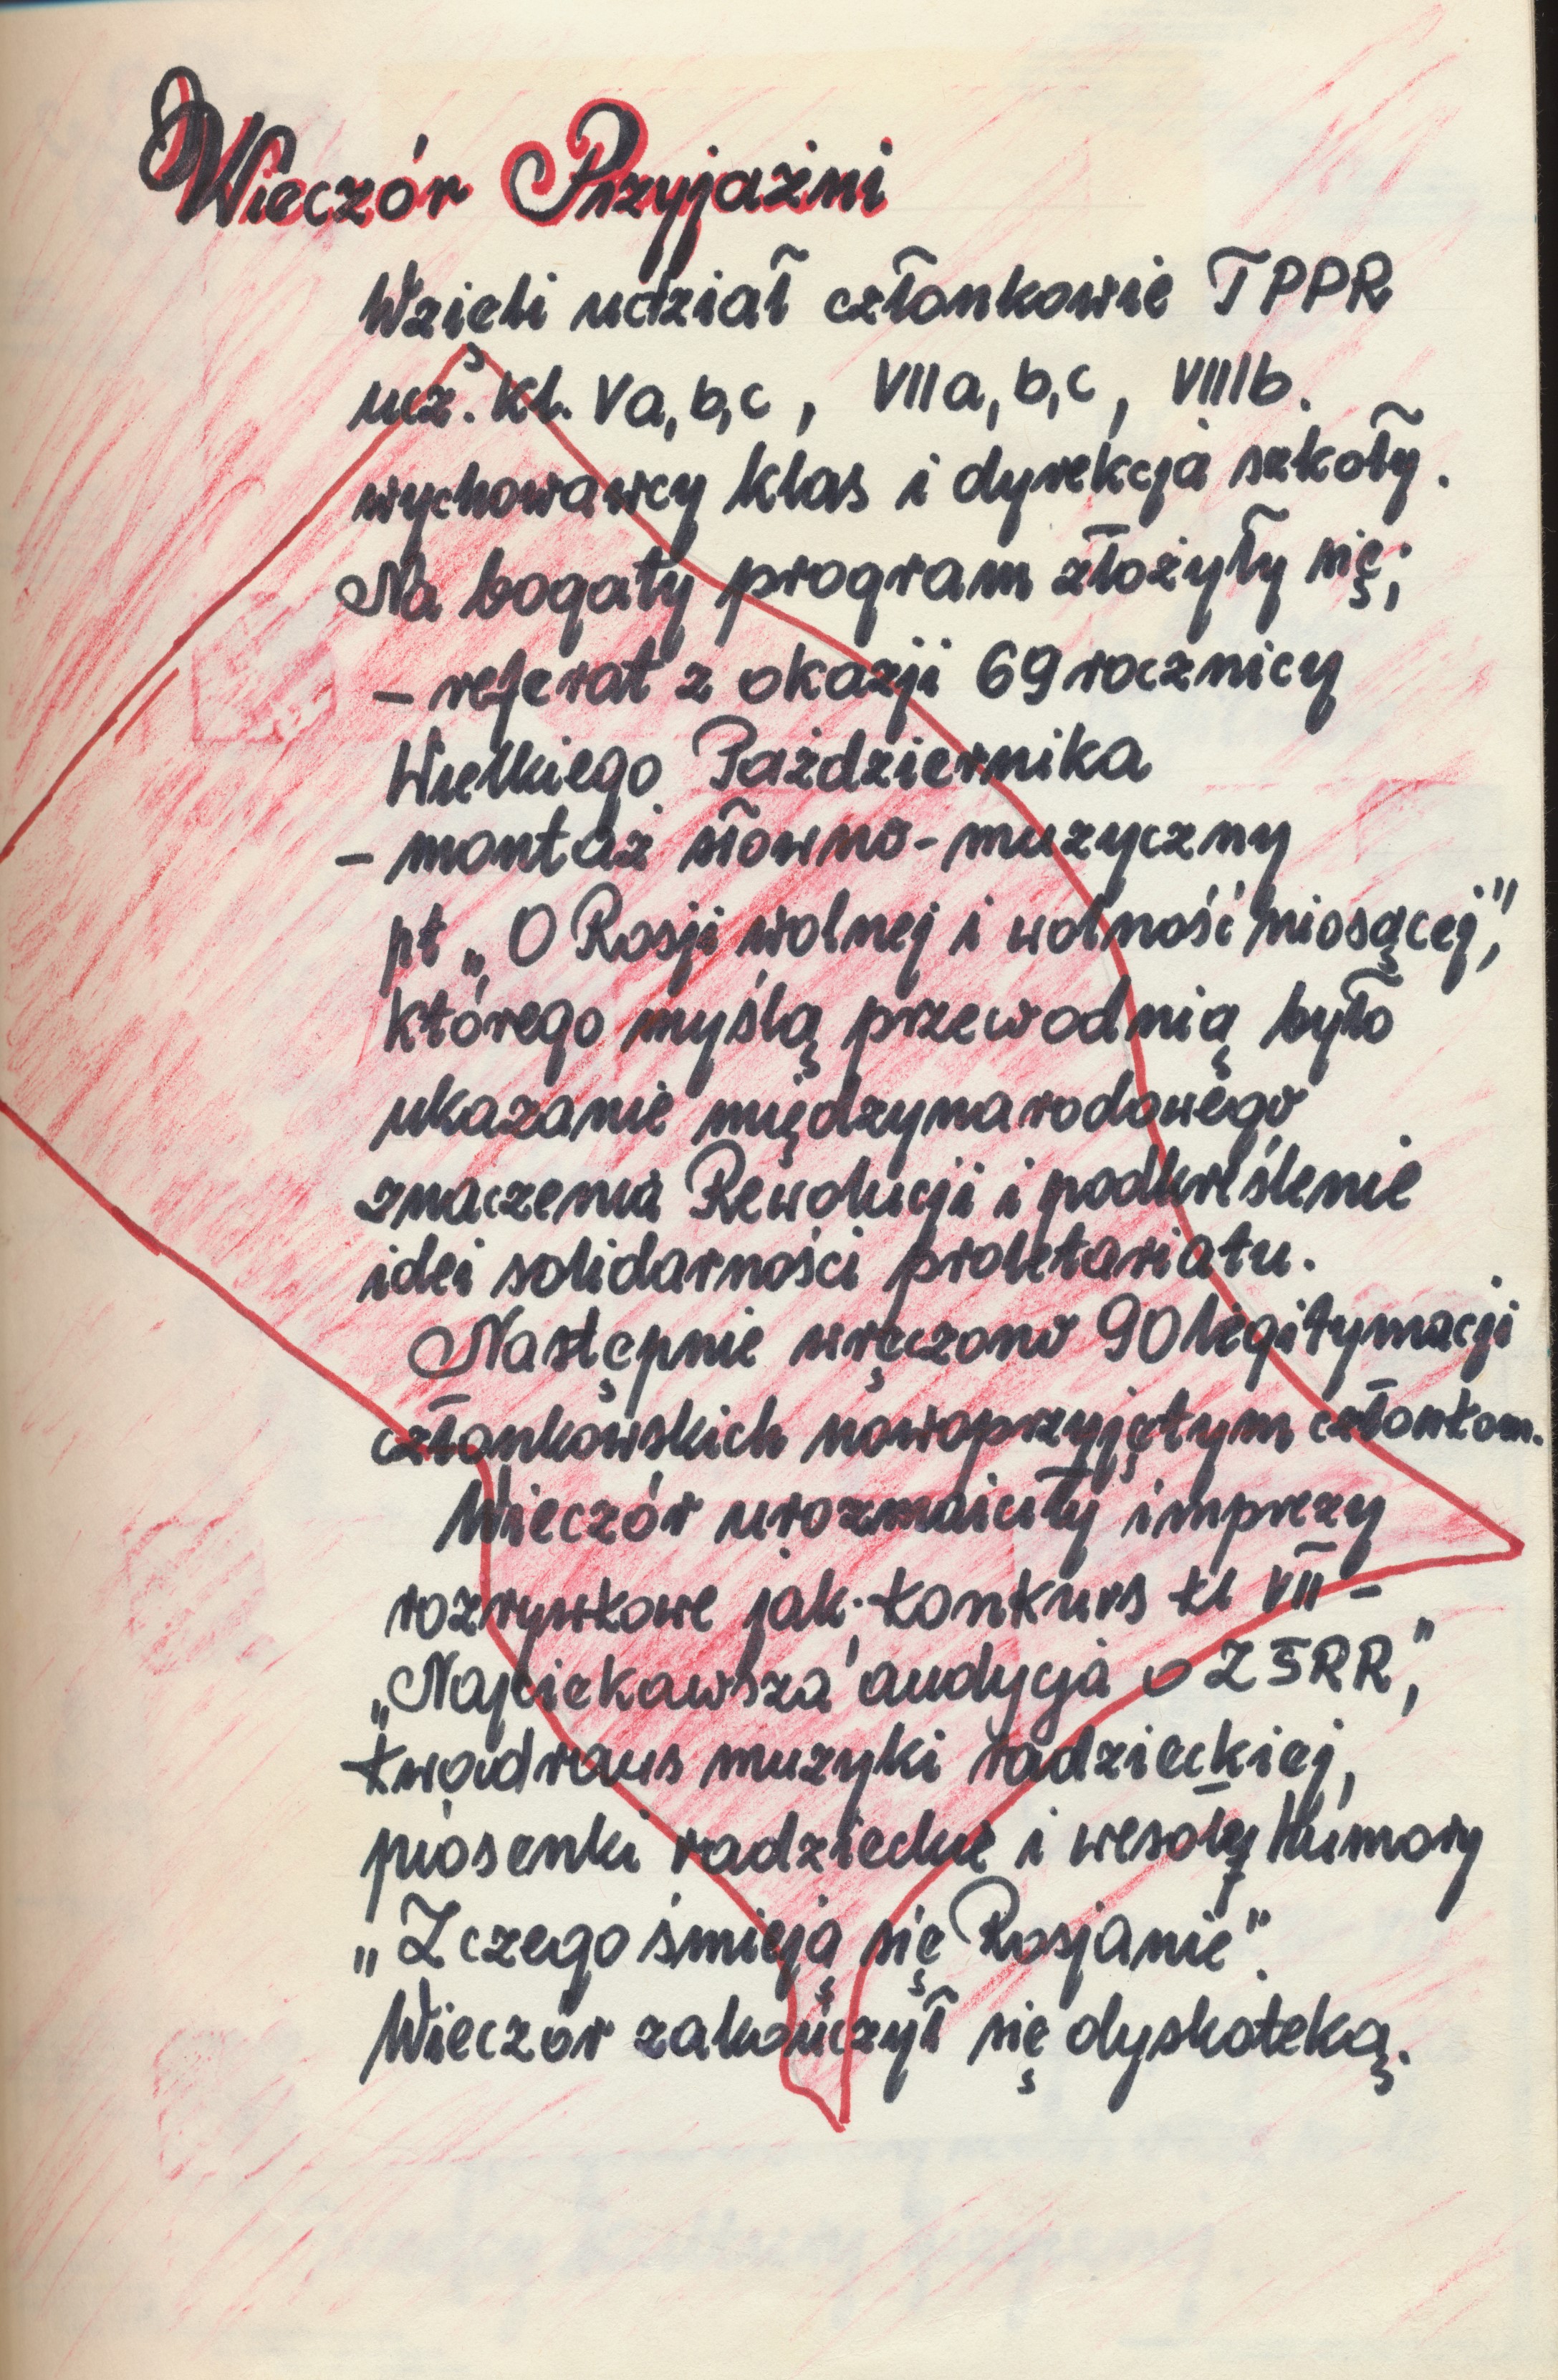 Wieczór Przyjaźni
Wzięli udział członkowie TPPR
ucz. kl. Va, b, c, VIIa, b, c, VIIIb.
wychowawcy klas i dyrekcja szkoły.
Na bogaty program złożyły się;
– referat z okazji 69 rocznicy
Wielkiego Października
– montaż słowno-muzyczny
pt „O Rosji wolnej i wolność niosącej",
którego myślą przewodnią było
ukazanie międzynarodowego
znaczenia Rewolucji i podkreślenie
idei solidarności proletariatu.
Następnie wręczono 90 legitymacji
członkowskich nowoprzyjętym członkom.
Wieczór urozmaiciły imprezy
rozrywkowe jak: konkurs kl VII –
„Najciekawsza audycja o ZSRR",
kwadrans muzyki radzieckiej,
piosenki radzieckie i wesołe humory
„Z czego śmieją się Rosjanie".
Wieczór zakończył się dyskoteką.